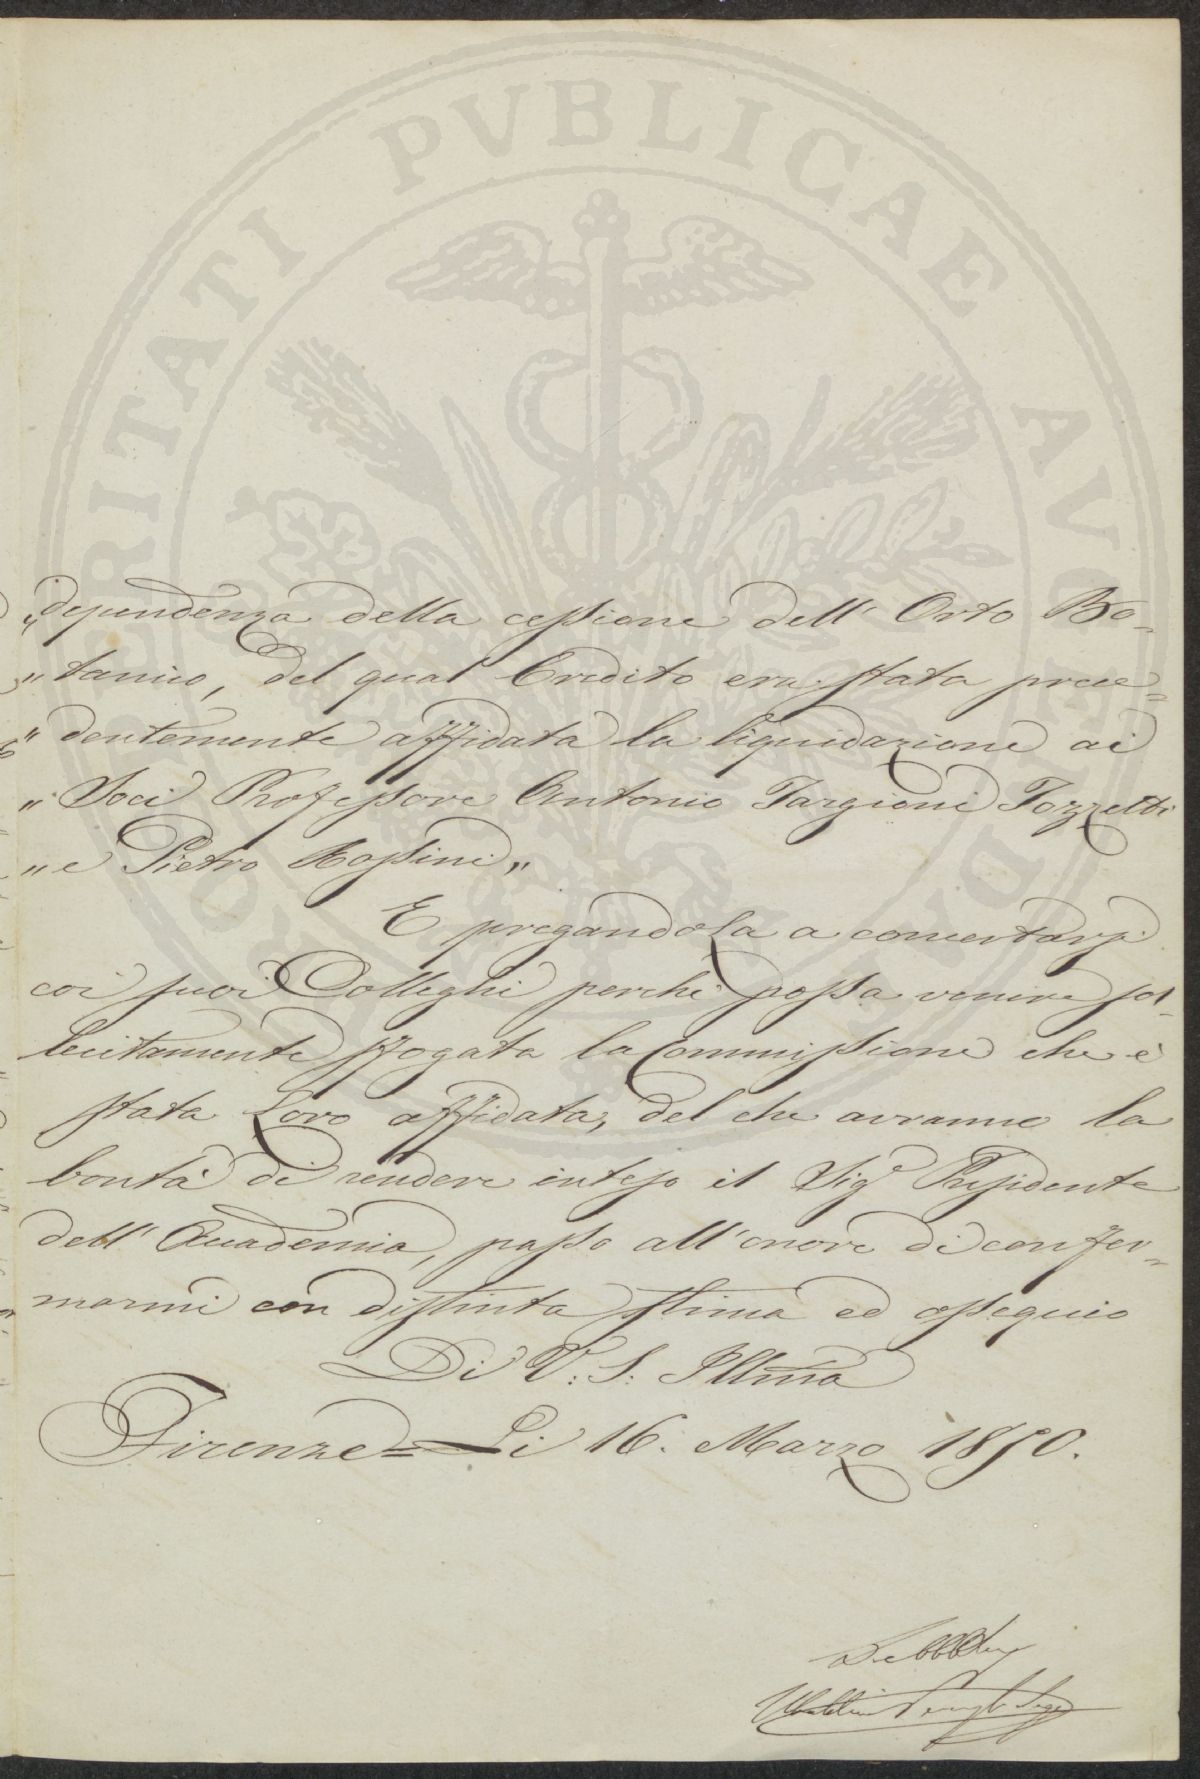 PROSPERITATI PVBLICAE AVGENDAE
„dipendenza della cessione dell' Orto Bo-
„tanico, del qual Credito era stata prece-
„dentemente affidata la liquidazione ai
„Soci Professore Antonio Targioni Tozzetti
„e Pietro Rossini„
E pregandola a concertarsi
coi suoi Colleghi perchè possa venire sol-
lecitamente sfogata la Commissione che è
stata Loro affidata, del che avranno la
bontà di rendere inteso il Sigre Presidente
dell' Accademia, passo all'onore di confer-
marmi con distinta stima ed ossequio
Di V: S: Illma
Firenze = Li 16. Marzo 1850.